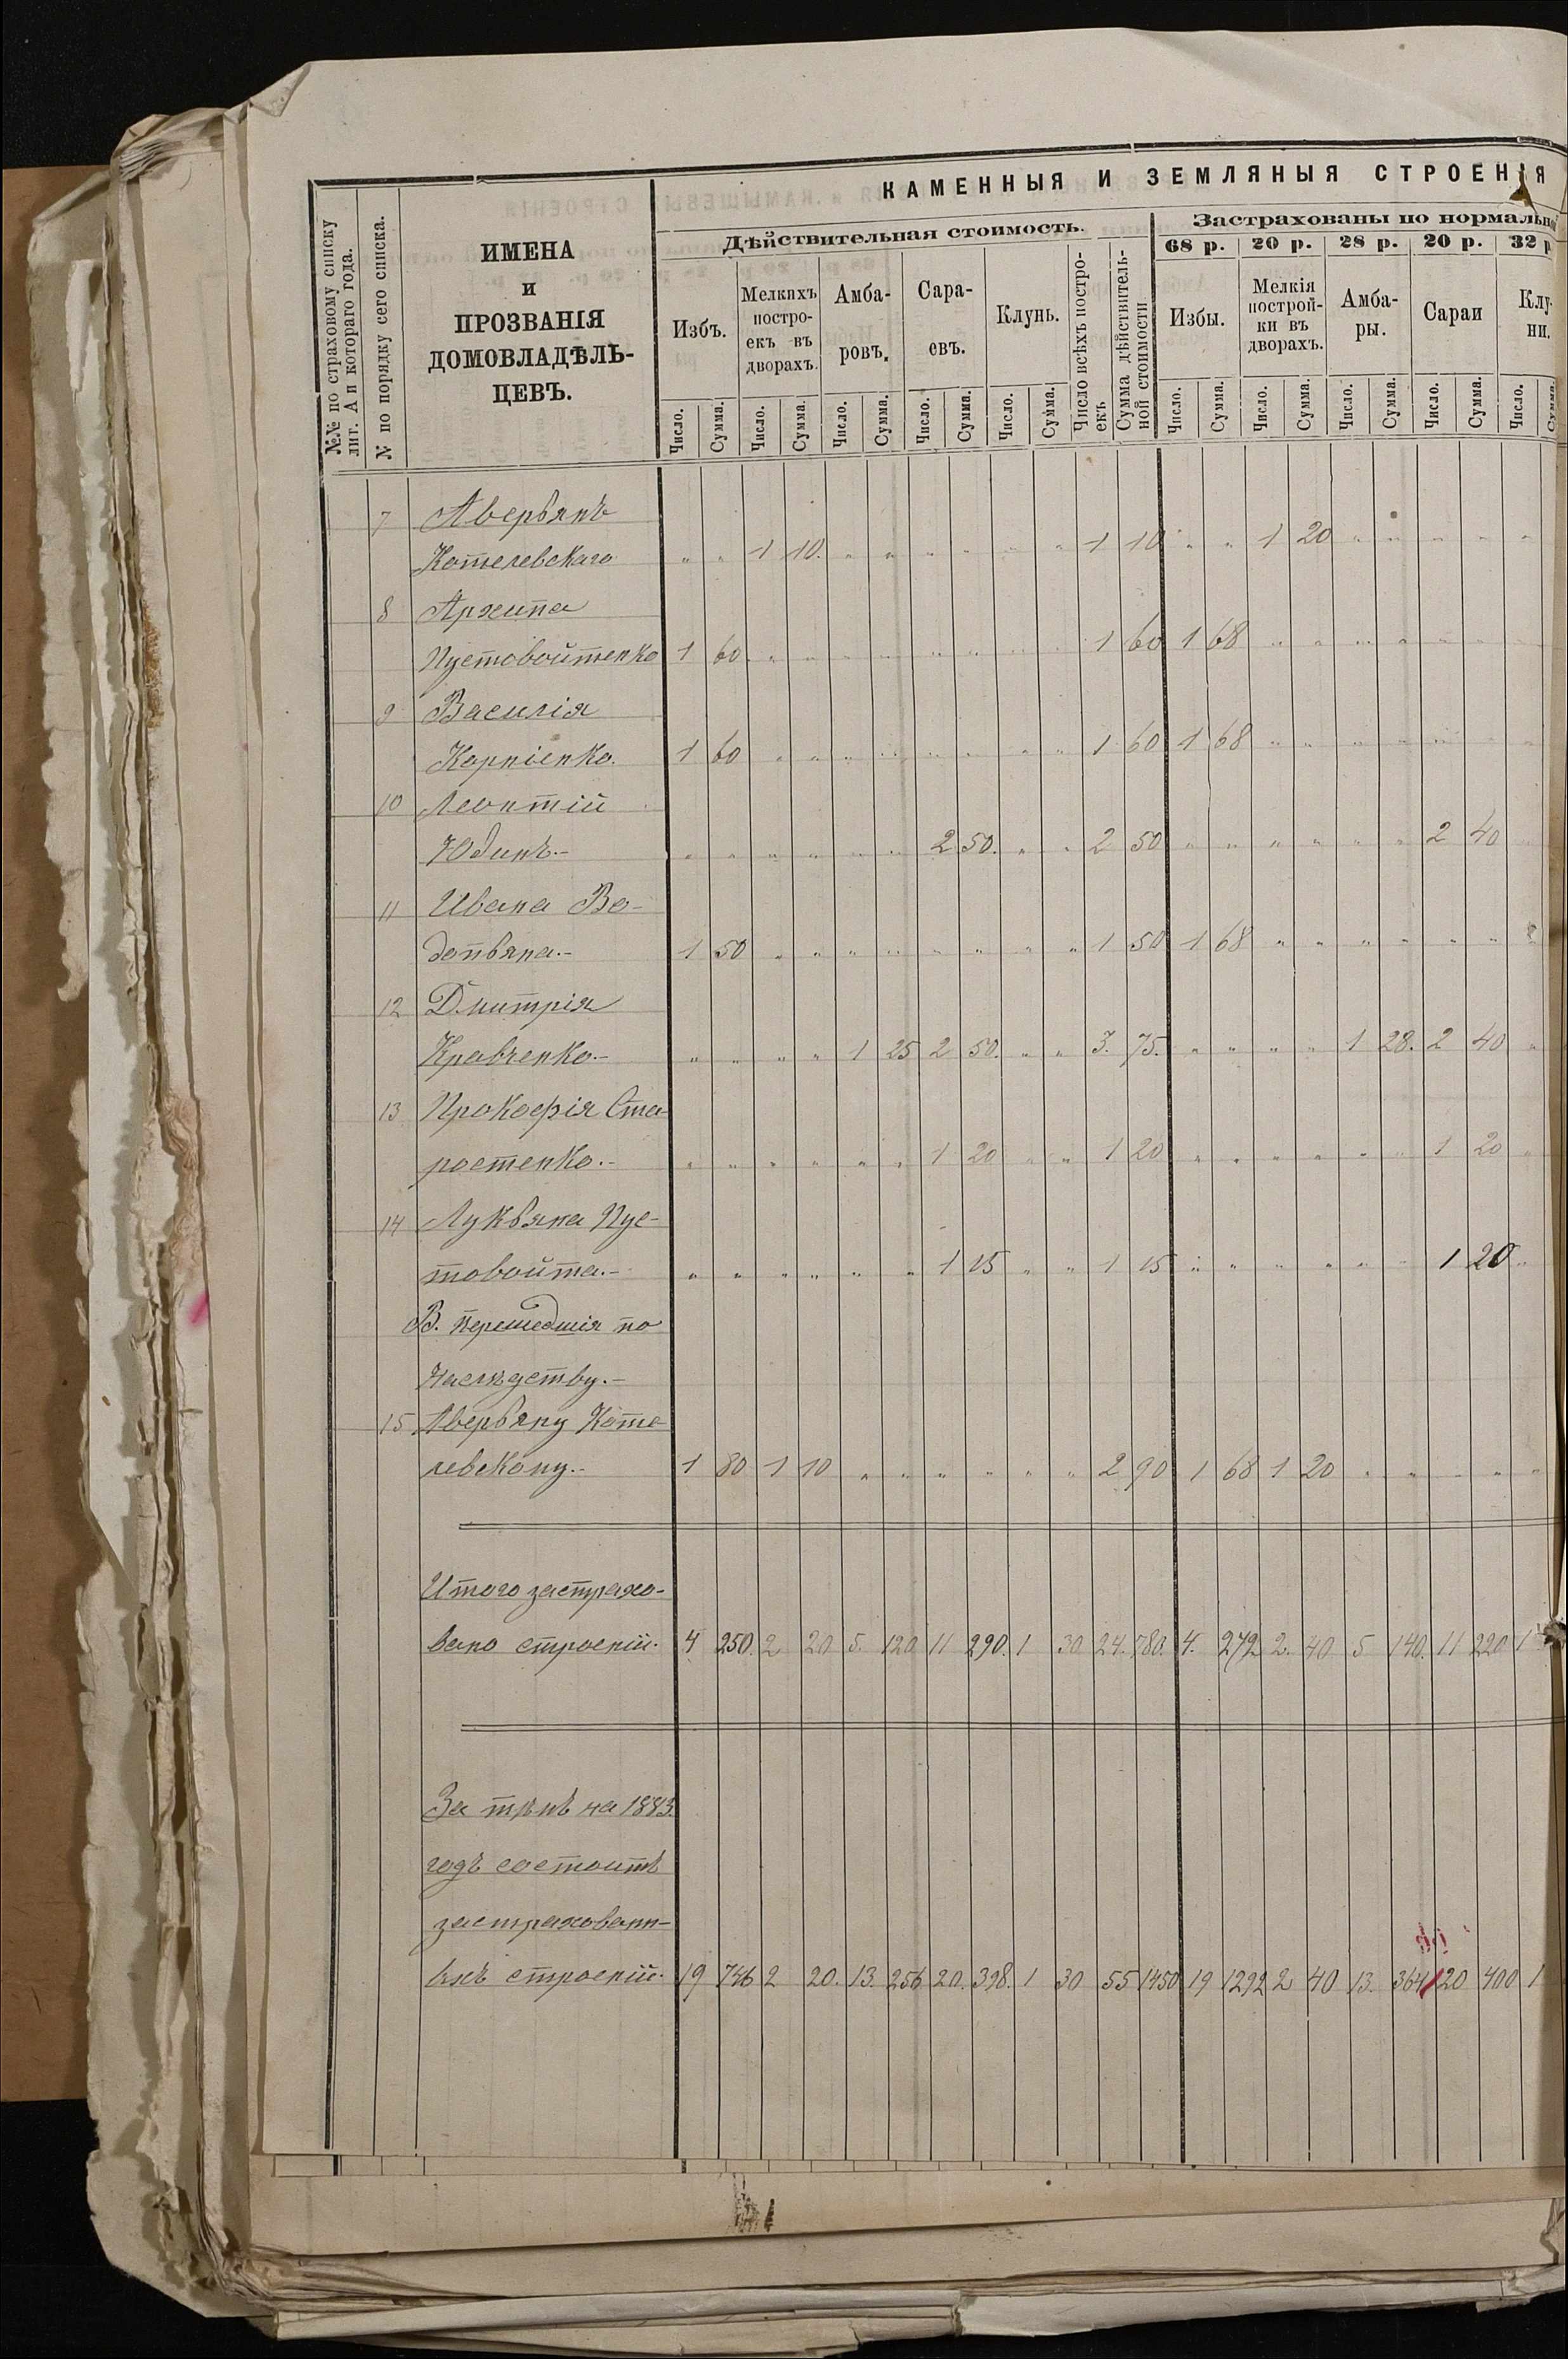 КАМЕННЫЯ И ЗЕМЛЯНЫЯ СТРОЕНІЯ
№№ по страховому списку лит. А и котораго года.
№ по порядку сего списка.
ИМЕНА
и
ПРОЗВАНІЯ
ДОМОВЛАДѢЛЬ-
ЦЕВЪ.
Дѣйствительная стоимость.
Застрахованы по нормальн
68 р. 20 р. 28 р. 20 р. 32 р
Избъ.
Мелкихъ постро-
екъ въ
дворахъ.
Амба-
ровъ.
Сара-
евъ.
Клунь.
Число всѣхъ постро-
екъ
Сумма дѣйствитель-
ной стоимости
Избы.
Мелкія
построй-
ки въ
дворахъ.
Амба-
ры.
Сараи
Клу-
ни.
Число. Сумма. Число. Сумма. Число. Сумма. Число. Сумма. Число. Сумма. Число. Сумма. Число. Сумма. Число. Сумма. Число. Сумма. Число. Сумма.
7 Аверьянъ
Котелевскаго " " 1 10. " " " " " " 1 10 " " 1 20 " " " " "
8 Архипа
Пустовойтенко 1 60. " " " " " " " " 1 60 1 68 " " " " " " "
9 Василія
Корніенко. 1 60 " " " " " " " " 1 60 1 68 " " " " " " "
10 Леонтій
Юдинъ.- " " " " " " 2 50. " " 2 50 " " " " " " 2 40 "
11 Ивана Во-
допьяна.- 1 50 " " " " " " " " 1 50 1 68 " " " " " " "
12 Дмитрія
Кравченко.- " " " " 1 25 2 50. " " 3. 75. " " " " 1 28. 2 40 "
13 Прокофія Ста-
ростенко.- " " " " " " 1 20 " " 1 20 " " " " " " 1 20 "
14 Лукьяна Пус-
товойта.- " " " " " " 1 15 " " 1 15 " " " " " " 1 20 "
В. перешедшія по
наслѣдству.-
15 Аверьяну Коте-
левскому.- 1 80 1 10 " " " " " " 2 90 1 68 1 20 " " " " "
Итого застрахо-
вано строеній. 4 250. 2 20 5. 120 11 290. 1 30 24. 780. 4. 272 2. 40 5 140. 11 220 1
За тѣмъ на 1883
годъ состоитъ
застрахован-
ыхъ строеній. 19 746 2 20. 13. 256 20. 398. 1 30 55 1450 19 1292 2 40 13. 364 20 400 1